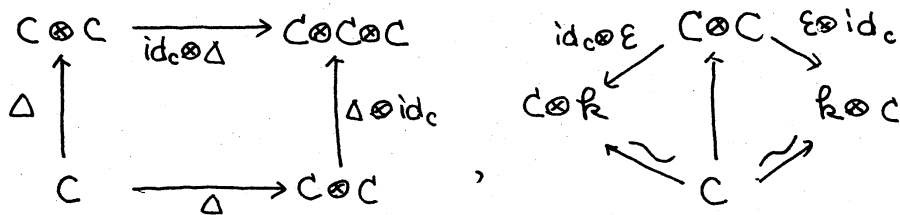 C ⊗ C id_c⊗Δ C⊗C⊗C
Δ Δ⊗id_c
C Δ C⊗C ,
id_c⊗ε C⊗C ε⊗id_c
C⊗k k⊗C
~ ~
C